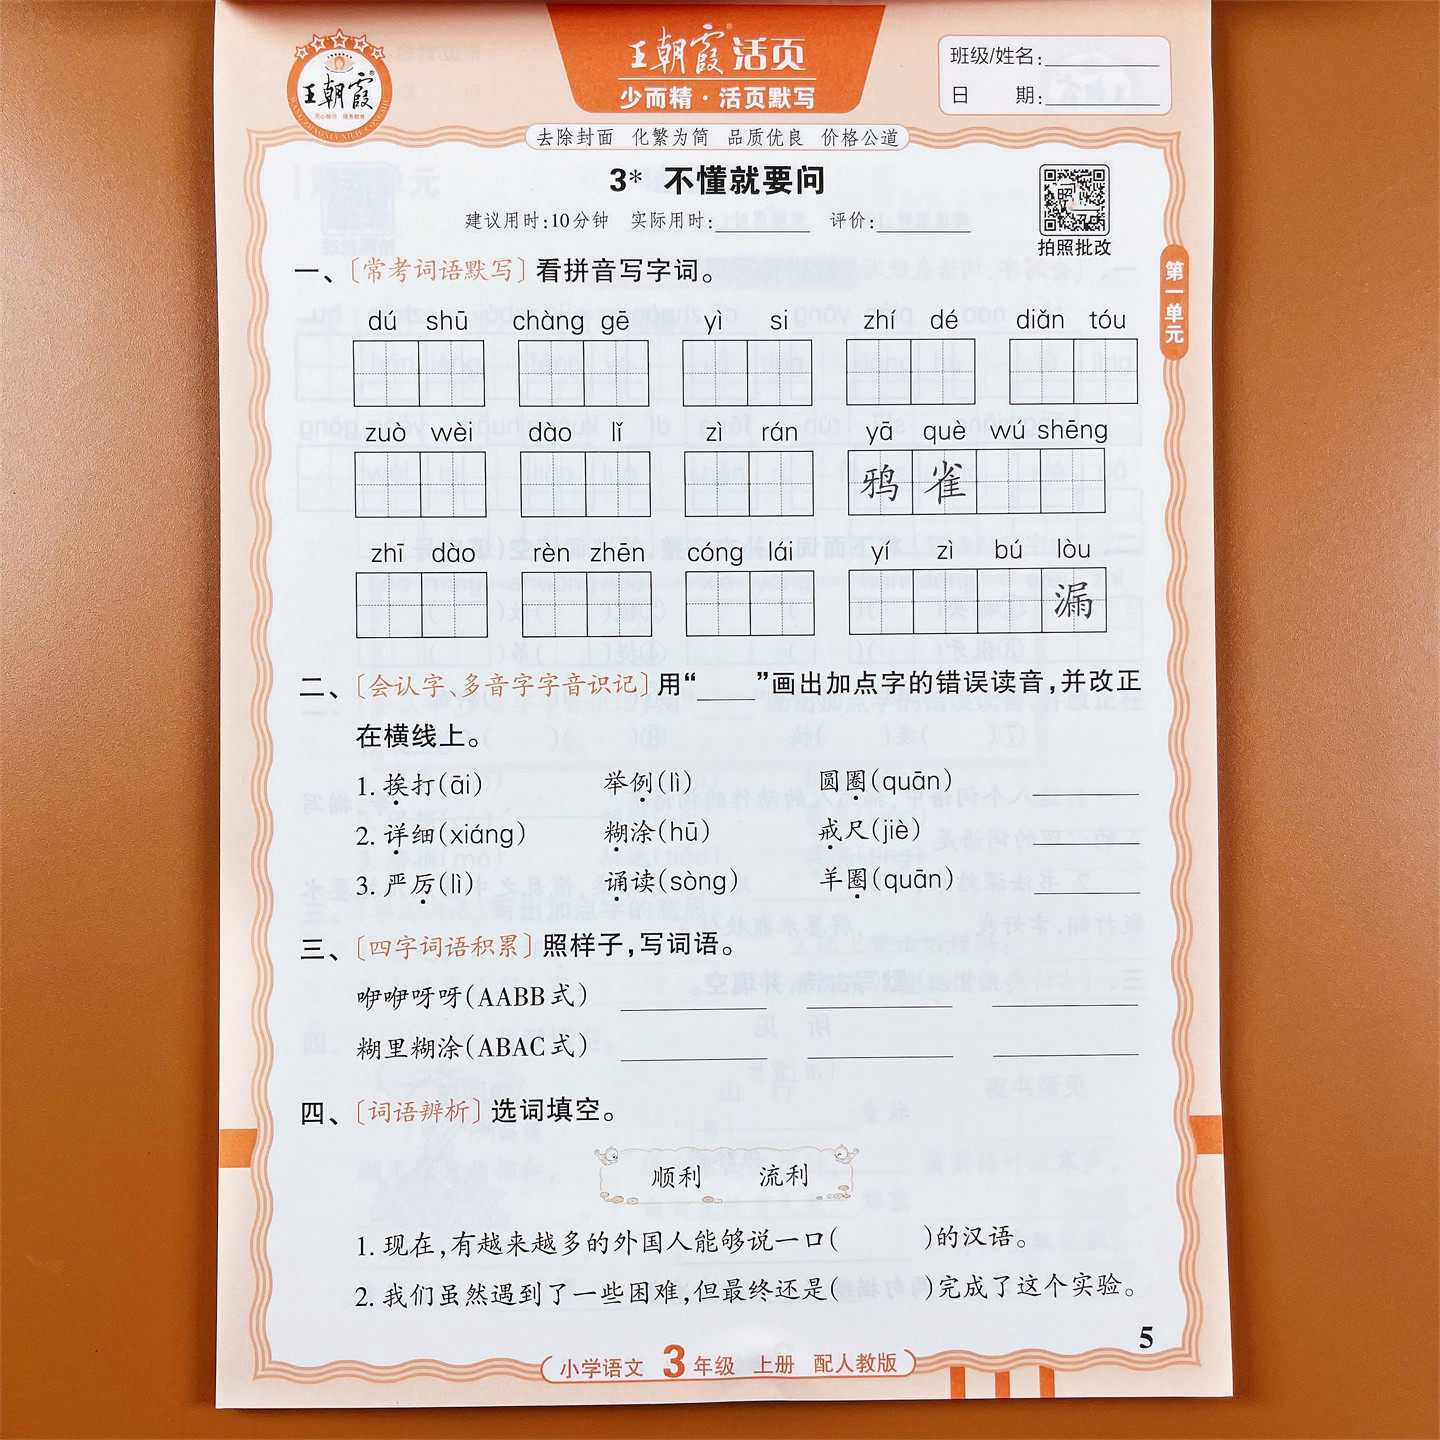 王朝霞
王朝霞®活页
少而精·活页默写
班级/姓名:
日 期:
去除封面 化繁为简 品质优良 价格公道
3* 不懂就要问
建议用时:10分钟 实际用时: 评价:
拍照批改
第一单元
一、〔常考词语默写〕看拼音写字词。
dú shū chàng gē yì si zhí dé diǎn tóu
zuò wèi dào lǐ zì rán yā què wú shēng
鸦雀
zhī dào rèn zhēn cóng lái yí zì bú lòu
漏
二、〔会认字、多音字字音识记〕用“____”画出加点字的错误读音,并改正
在横线上。
1. 挨打(āi) 举例(lì) 圆圈(quān)
2. 详细(xiáng) 糊涂(hū) 戒尺(jiè)
3. 严厉(lì) 诵读(sòng) 羊圈(quān)
三、〔四字词语积累〕照样子,写词语。
咿咿呀呀(AABB式)
糊里糊涂(ABAC式)
四、〔词语辨析〕选词填空。
顺利 流利
1. 现在,有越来越多的外国人能够说一口( )的汉语。
2. 我们虽然遇到了一些困难,但最终还是( )完成了这个实验。
5
小学语文 3年级 上册 配人教版